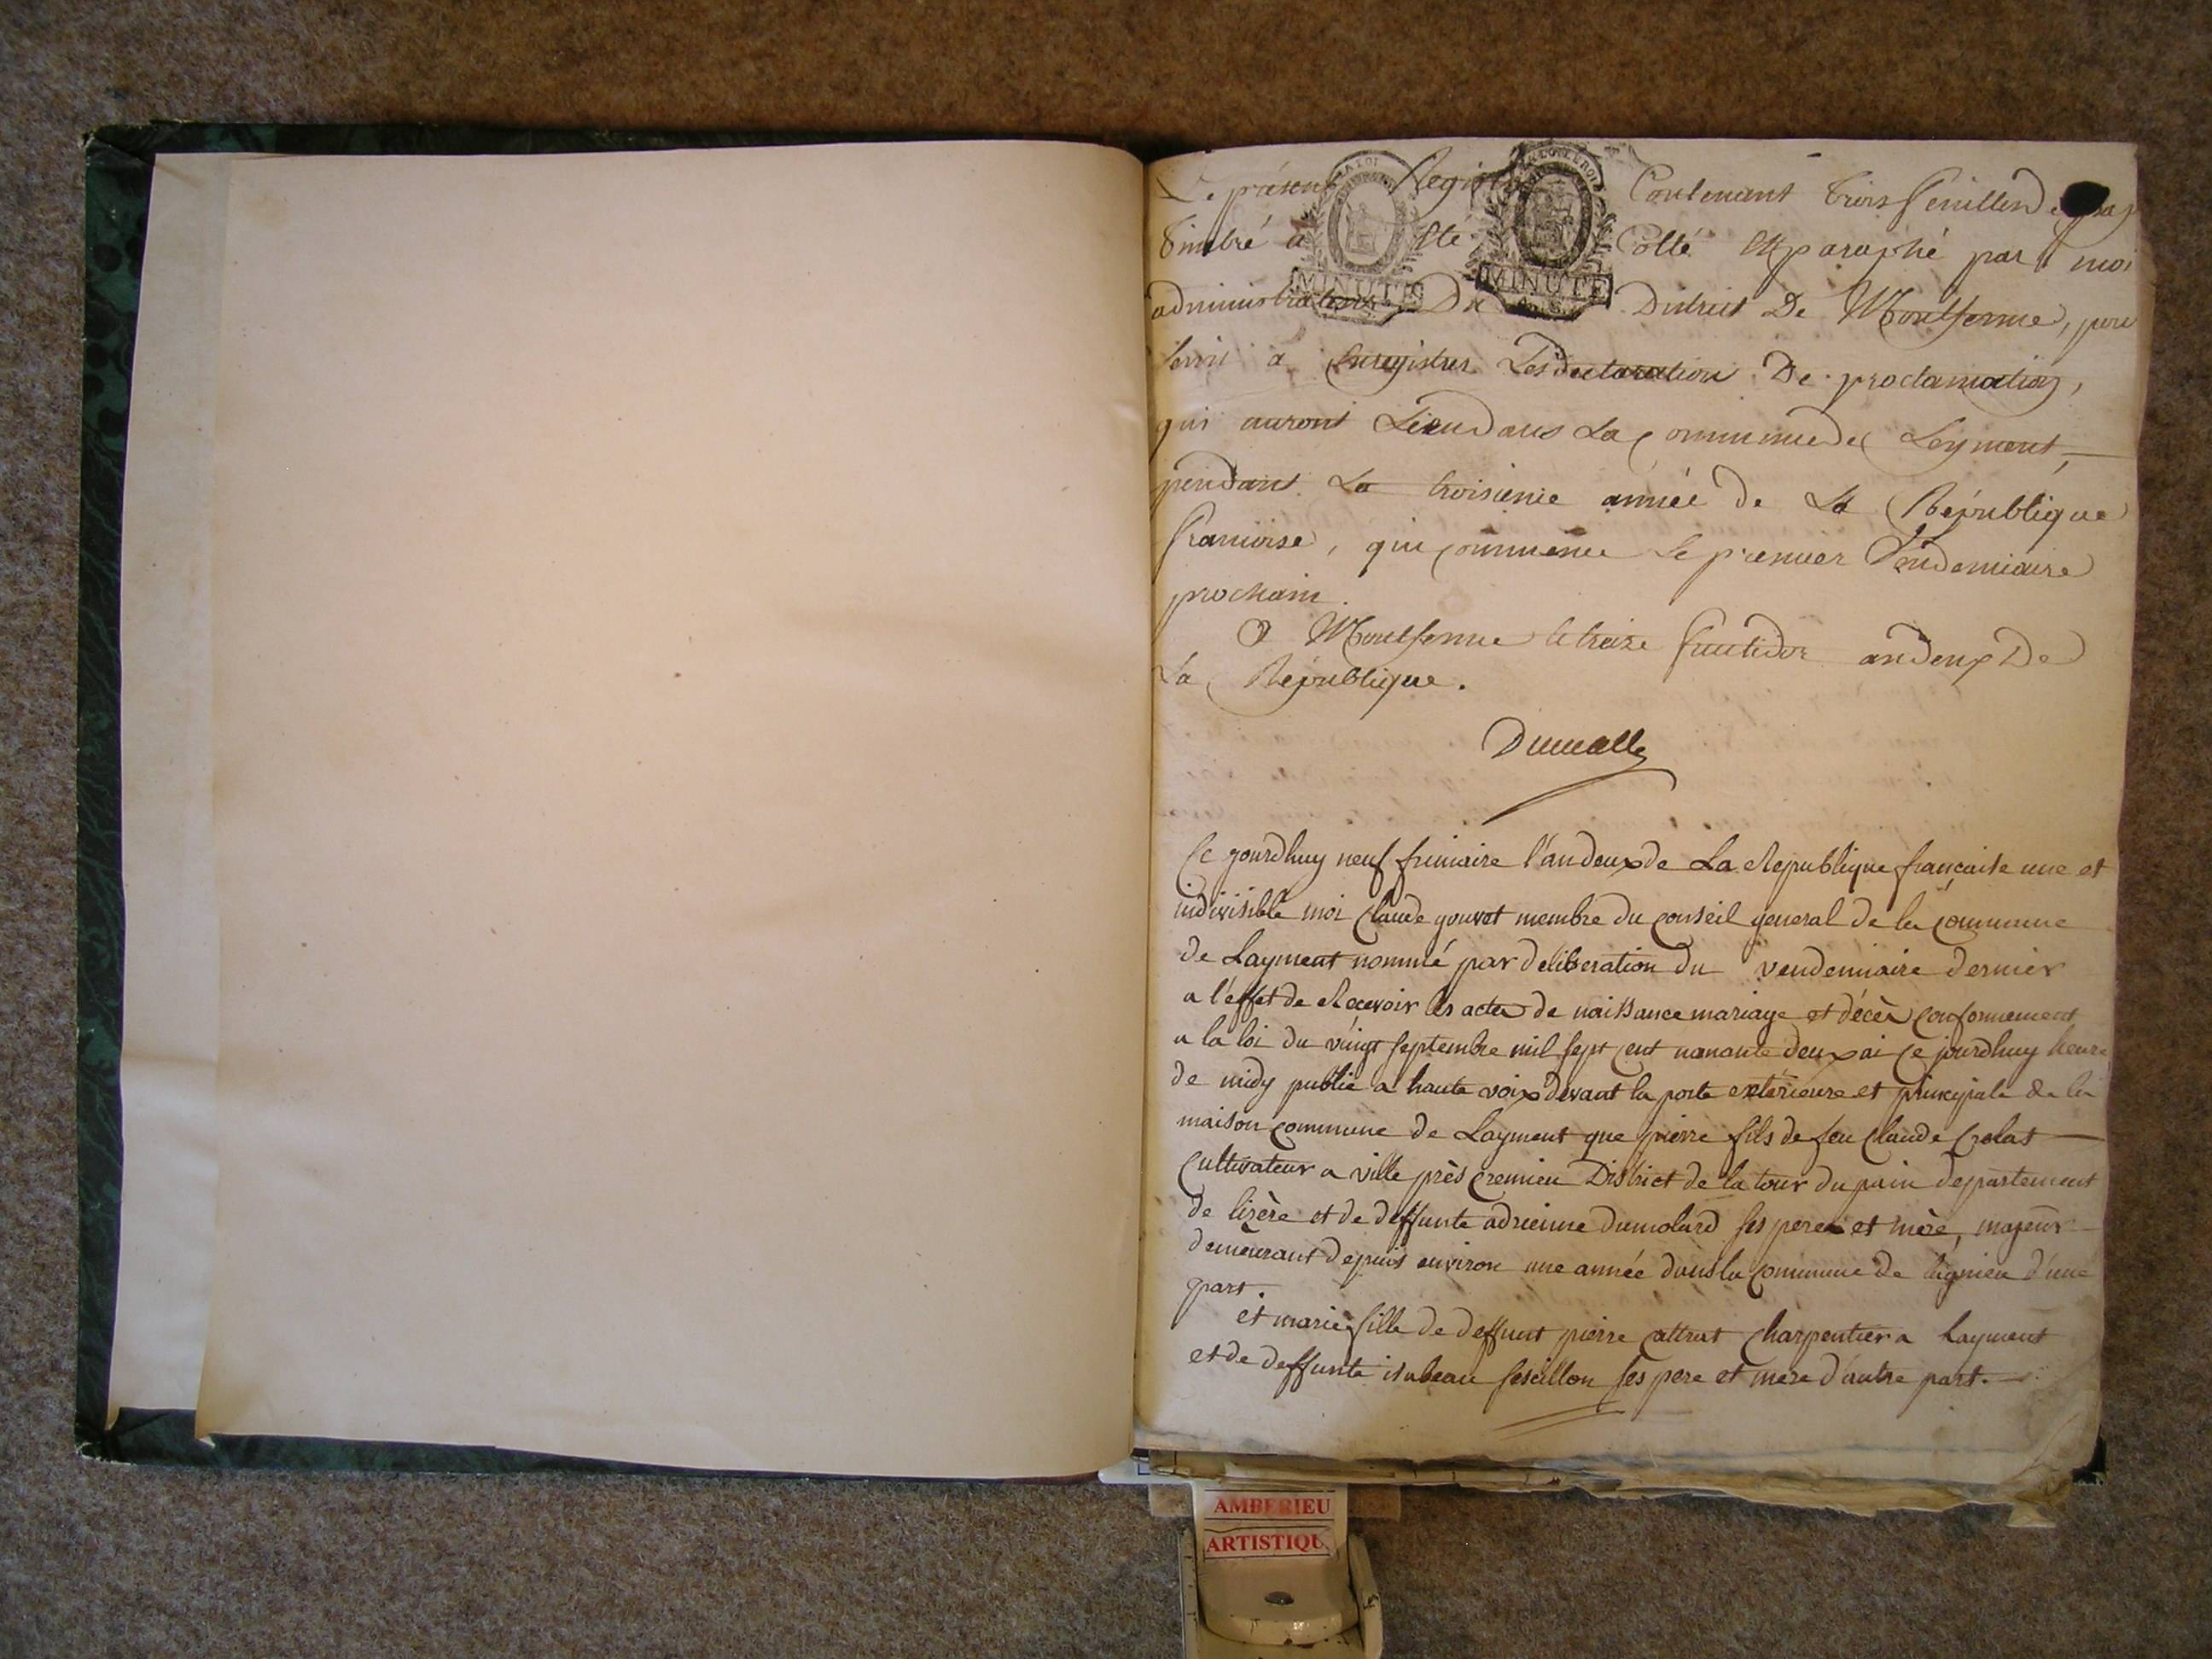 Le présent Registre Contenant trois feuilles de pap
timbré a été Cotté et paraphé par moi
administrateur Du District De Montferme, pour
servir a Enregistrer Les declaration De proclamation,
qui auront Lieu dans La Commune de Leyment,
pendant La troisieme année de La République
francoise, qui commence le premier Vendemiaire
prochain.
a Montferme le treize fructidor an deux De
La République.
Ce gourdhuy neuf frimaire l'an deux de La Republique francaise une et
indivisible moi Claude gouvet membre du conseil general de la commune
de Layment nommé par deliberation du vendemiaire dernier
a l'effet de Recevoir les actes de naissance mariage et décès conformement
a la loi du vingt septembre mil sept cent nonante deux ai ce jourdhuy heure
de midy publié a haute voix devant la porte extérieure et principale de la
maison commune de Layment que pierre fils de feu Claude Crolat
Cultivateur a ville près Cremieu District de la tour du pain departement
de lizère et de deffunte adrienne dumolard ses pere et mère, majeur
demeurant depuis environ une année dans la commune de lagnieu d'une
part.
et marie fille de deffunt pierre cattrat charpentier a Layment
et de deffunte isabeau ses pere et mere d'autre part.
LA LOI LE ROI
MINUTE
MINUTE
AMBERIEU
ARTISTIQU